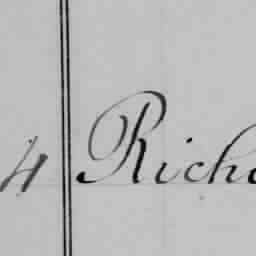 4 Richa